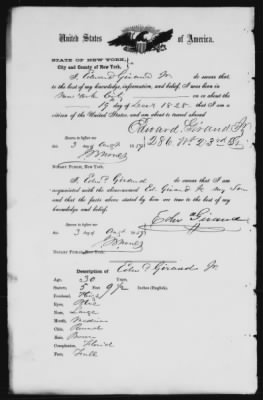 United States of America.
STATE OF NEW YORK,
City and County of New York.
I, Edward Giraud Jr. do swear that
to the best of my knowledge, information, and belief, I was born in
New York City on or about the
19 day of 1828, that I am a
citizen of the United States, and am about to travel abroad
Edward Giraud Jr
286 W 23rd St.
Sworn to before me
3 day of Augt 18
NOTARY PUBLIC, New York.
I, Edwd Giraud do swear that I am
acquainted with the above-named Ed. Giraud Jr. my Son
and that the facts above stated by him are true to the best of my
knowledge and belief.
Edw Giraud
Sworn to before me
3 day of Aug 18
NOTARY PUBLIC, New York.
Description of Edwd Giraud Jr.
Age, 30 Years,
Stature, 5 Feet 9 1/2 Inches (English),
Forehead, High
Eyes,
Nose, Large
Mouth, Medium
Chin, Round
Hair, Brown
Complexion, Florid
Face, Full